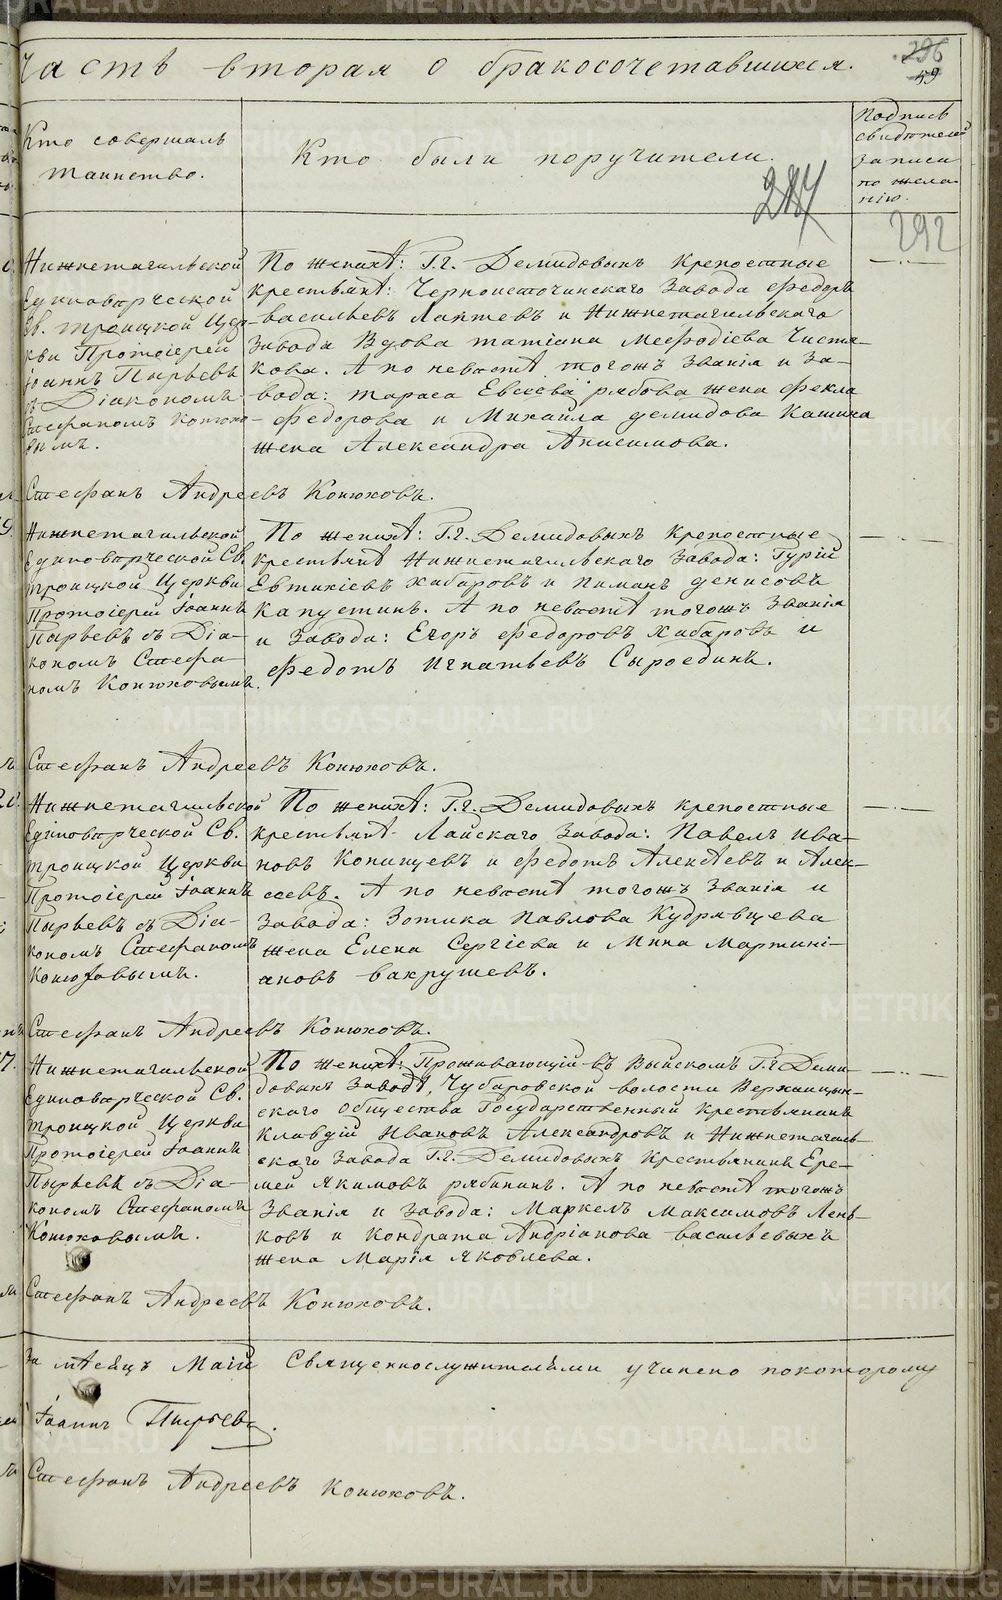 Часть вторая о бракосочетавшихся.
296
59
Кто совершалъ
таинство.
Кто были поручители.
Подпись
свидѣтелей
записи
по жела-
нію.
287
292
Нижнетагильской
Единовѣрческой
Св. Троицкой Цер-
кви Протоіерей
Іоаннъ Пырьевъ
съ Діакономъ
Стефаномъ Конюхо-
вымъ.
По женихѣ: Г.г. Демидовыхъ крепостные
крестьянѣ: Черноисточинскаго Завода Федоръ
Васильевъ Лаптевъ и Нижнетагильскаго
Завода Вдова Татіана Мефодіева Чистя-
кова. А по невѣстѣ тогожъ Званія и За-
вода: Тараса Евсеева Рябова жена Фекла
Федорова и Михаила Демидова Кашина
жена Александра Анисимова.
Стефанъ Андреевъ Конюховъ.
Нижнетагильской
Единовѣрческой Св.
Троицкой Церкви
Протоіерей Іоаннъ
Пырьевъ съ Діа-
кономъ Стефа-
номъ Конюховымъ.
По женихѣ: Г.г. Демидовыхъ крепостные
крестьянѣ Нижнетагильскаго Завода: Гурій
Евтихіевъ Хабаровъ и Пиманъ Денисовъ
Капустинъ. А по невѣстѣ тогожъ Званія
и Завода: Егоръ Федоровъ Хабаровъ и
Федотъ Игнатьевъ Сыроединъ.
Стефанъ Андреевъ Конюховъ.
Нижнетагильской
Единовѣрческой Св.
Троицкой Церкви
Протоіерей Іоаннъ
Пырьевъ съ Діа-
кономъ Стефаномъ
Конюховымъ.
По женихѣ: Г.г. Демидовыхъ крепостные
крестьянѣ Лайскаго Завода: Павелъ Ива-
новъ Копищевъ и Федотъ Алексѣевъ и Алек-
сеевъ. А по невѣстѣ тогожъ Званія и
Завода: Зотика Павлова Кудрявцева
жена Елена Сергіева и Мина Мартині-
ановъ Вакрушевъ.
Стефанъ Андреевъ Конюховъ.
Нижнетагильской
Единовѣрческой Св.
Троицкой Церкви
Протоіерей Іоаннъ
Пырьевъ съ Діа-
кономъ Стефаномъ
Конюховымъ.
По женихѣ: Проживающій въ Выйскомъ Г.г. Деми-
довыхъ Заводѣ, Чубаровской волости
скаго Общества Государственный крестьянинъ
Клавдій Ивановъ Александровъ и Нижнетагиль-
скаго Завода Г.г. Демидовыхъ Крестьянинъ Ере-
мей Якимовъ Рябининъ. А по невѣстѣ тогожъ
Званія и Завода: Маркелъ Максимовъ Лень-
ковъ и Кондрата Андріанова Васильевыхъ
жена Марія Яковлева.
Стефанъ Андреевъ Конюховъ.
За мѣсяцъ Маій Священнослужителями учинено покоторому
Іоаннъ Пырьевъ.
Стефанъ Андреевъ Конюховъ.
METRIKI.GASO-URAL.RU